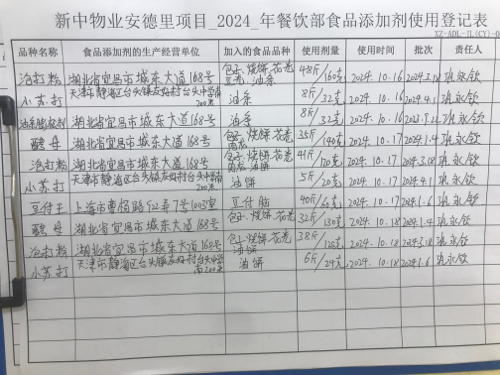 新中物业安德里项目_2024_年餐饮部食品添加剂使用登记表
XZ-ADL-JL(CY)-0
品种名称 食品添加剂的生产经营单位 加入的食品品种 使用剂量 使用时间 批次 责任人
泡打粉 湖北省宜昌市城东大道168号 包子.烧饼.花卷 油条 48斤/160克 2024.10.16
小苏打 天津市静海区台头镇友好村台头中学南200米 油条 8斤/32克 2024.10.16 2024.4.1
湖北省宜昌市城东大道168号 油条 8斤/32克 2024.10.16
酵母 湖北省宜昌市城东大道168号 包子.烧饼.花卷 35斤/140克 2024.10.17 2024.1.4
泡打粉 湖北省宜昌市城东大道168号 包子.烧饼.花卷 41斤/120克 2024.10.17
小苏打 天津市静海区台头镇友好村台头中学南200米 油饼 5斤/20克 2024.10.17 2024.4.1
豆付王 上海市曹杨路 1003室 豆付脑 40斤/6克 2024.10.17 2024.1.6
酵母 湖北省宜昌市城东大道168号 包子.烧饼.花卷 32斤/130克 2024.10.18 2024.1.4
泡打粉 湖北省宜昌市城东大道168号 包子.烧饼.花卷 油饼 38斤/125克 2024.10.18
小苏打 天津市静海区台头镇友好村台头中学南200米 油饼 6斤/24克 2024.10.18